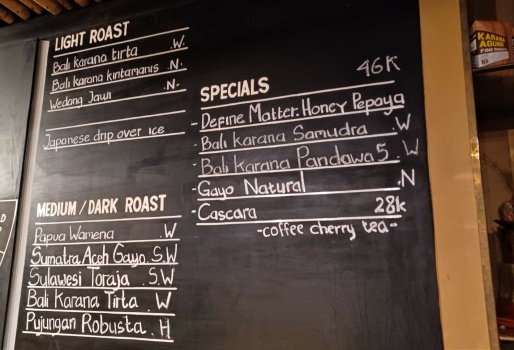 LIGHT ROAST
Bali karana tirta .W.
Bali karana kintamanis .N.
Wedang Jawi .N.
Japanese drip over ice
MEDIUM / DARK ROAST
Papua Wamena .W
Sumatra Aceh Gayo S.W
Sulawesi Toraja . S.W
Bali Karana Tirta . W
Pujungan Robusta . H
SPECIALS 46K
- Define Matter: Honey Pepaya
- Bali karana Samudra .W
- Bali Karana Pandawa 5 . W
- Gayo Natural .N
- Cascara 28k
-coffee cherry tea-
KARANA